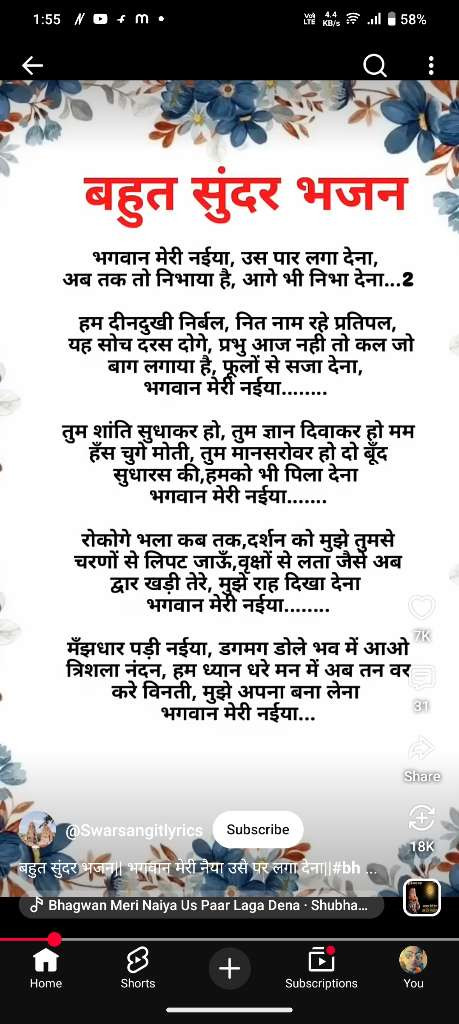 1:55
Vo) LTE 4.4 KB/s 58%
बहुत सुंदर भजन
भगवान मेरी नईया, उस पार लगा देना,
अब तक तो निभाया है, आगे भी निभा देना...2
हम दीनदुखी निर्बल, नित नाम रहे प्रतिपल,
यह सोच दरस दोगे, प्रभु आज नही तो कल जो
बाग लगाया है, फूलों से सजा देना,
भगवान मेरी नईया........
तुम शांति सुधाकर हो, तुम ज्ञान दिवाकर हो मम
हँस चुगे मोती, तुम मानसरोवर हो दो बूँद
सुधारस की,हमको भी पिला देना
भगवान मेरी नईया.......
रोकोगे भला कब तक,दर्शन को मुझे तुमसे
चरणों से लिपट जाऊँ,वृक्षों से लता जैसे अब
द्वार खड़ी तेरे, मुझे राह दिखा देना
भगवान मेरी नईया........
मँझधार पड़ी नईया, डगमग डोले भव में आओ
त्रिशला नंदन, हम ध्यान धरे मन में अब तन वर
करे विनती, मुझे अपना बना लेना
भगवान मेरी नईया...
7K
31
Share
18K
@Swarsangitlyrics Subscribe
बहुत सुंदर भजन|| भगवान मेरी नैया उसे पर लगा देना||#bh ...
Bhagwan Meri Naiya Us Paar Laga Dena · Shubha...
Home Shorts Subscriptions You